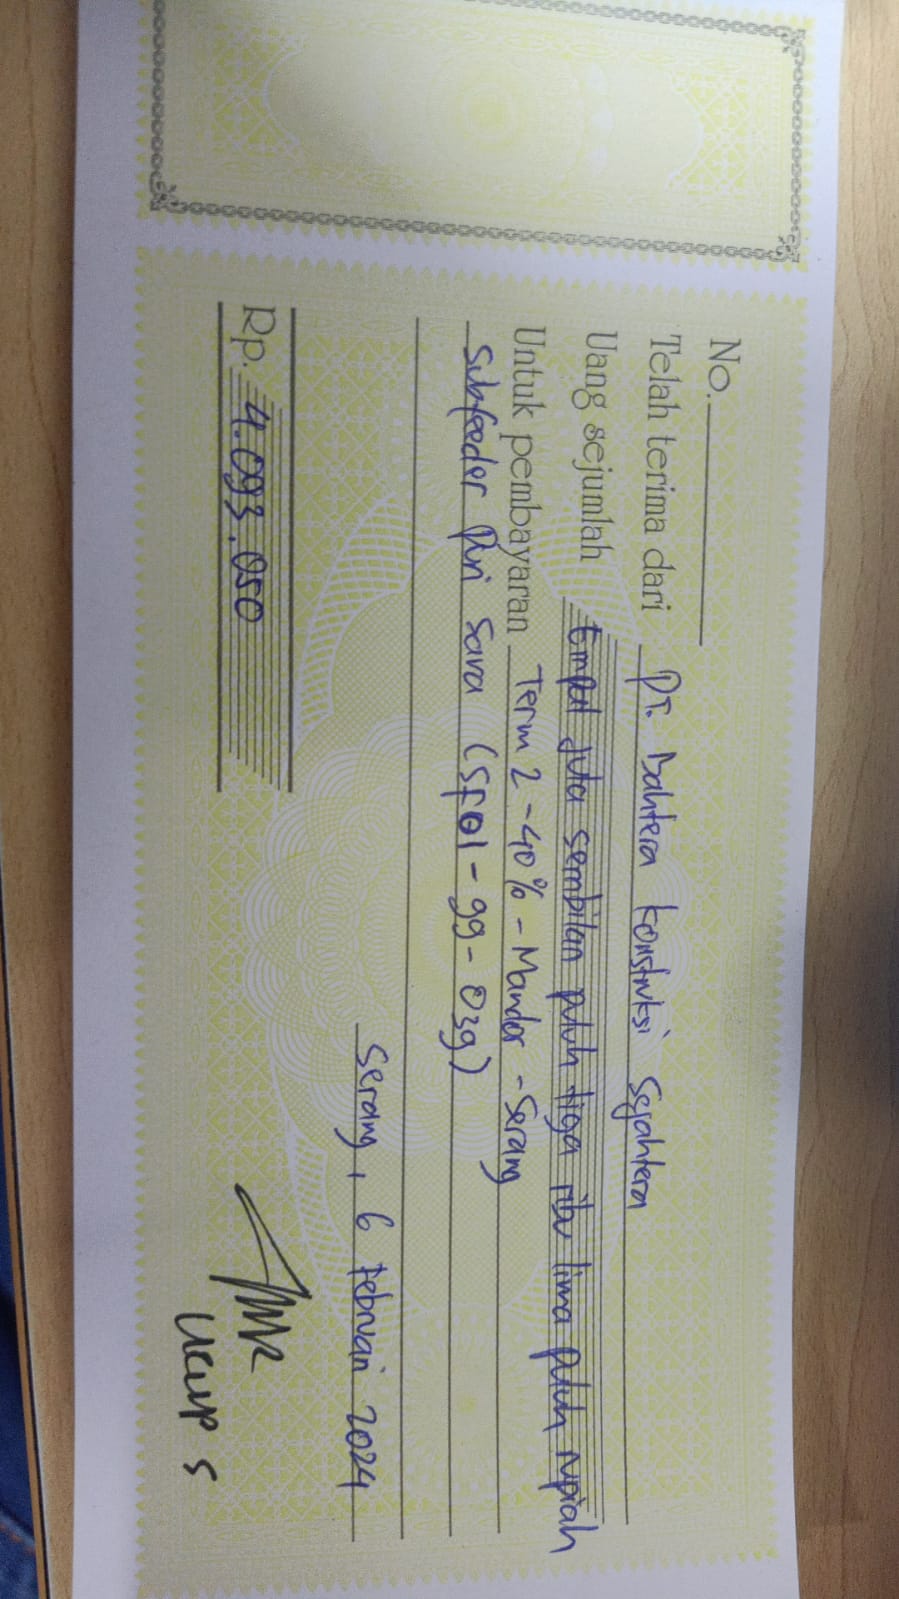 No.
Telah terima dari PT. Bahtera Konstruksi Sejahtera
Uang sejumlah Empat juta sembilan puluh tiga ribu lima puluh rupiah
Untuk pembayaran Term 2 - 40% - Mandor - Serang
Subfeeder Puri Sava (SF01 - 99 - 039)
Serang, 6 Februari 2024
Rp. 4.093.050
Ucup S